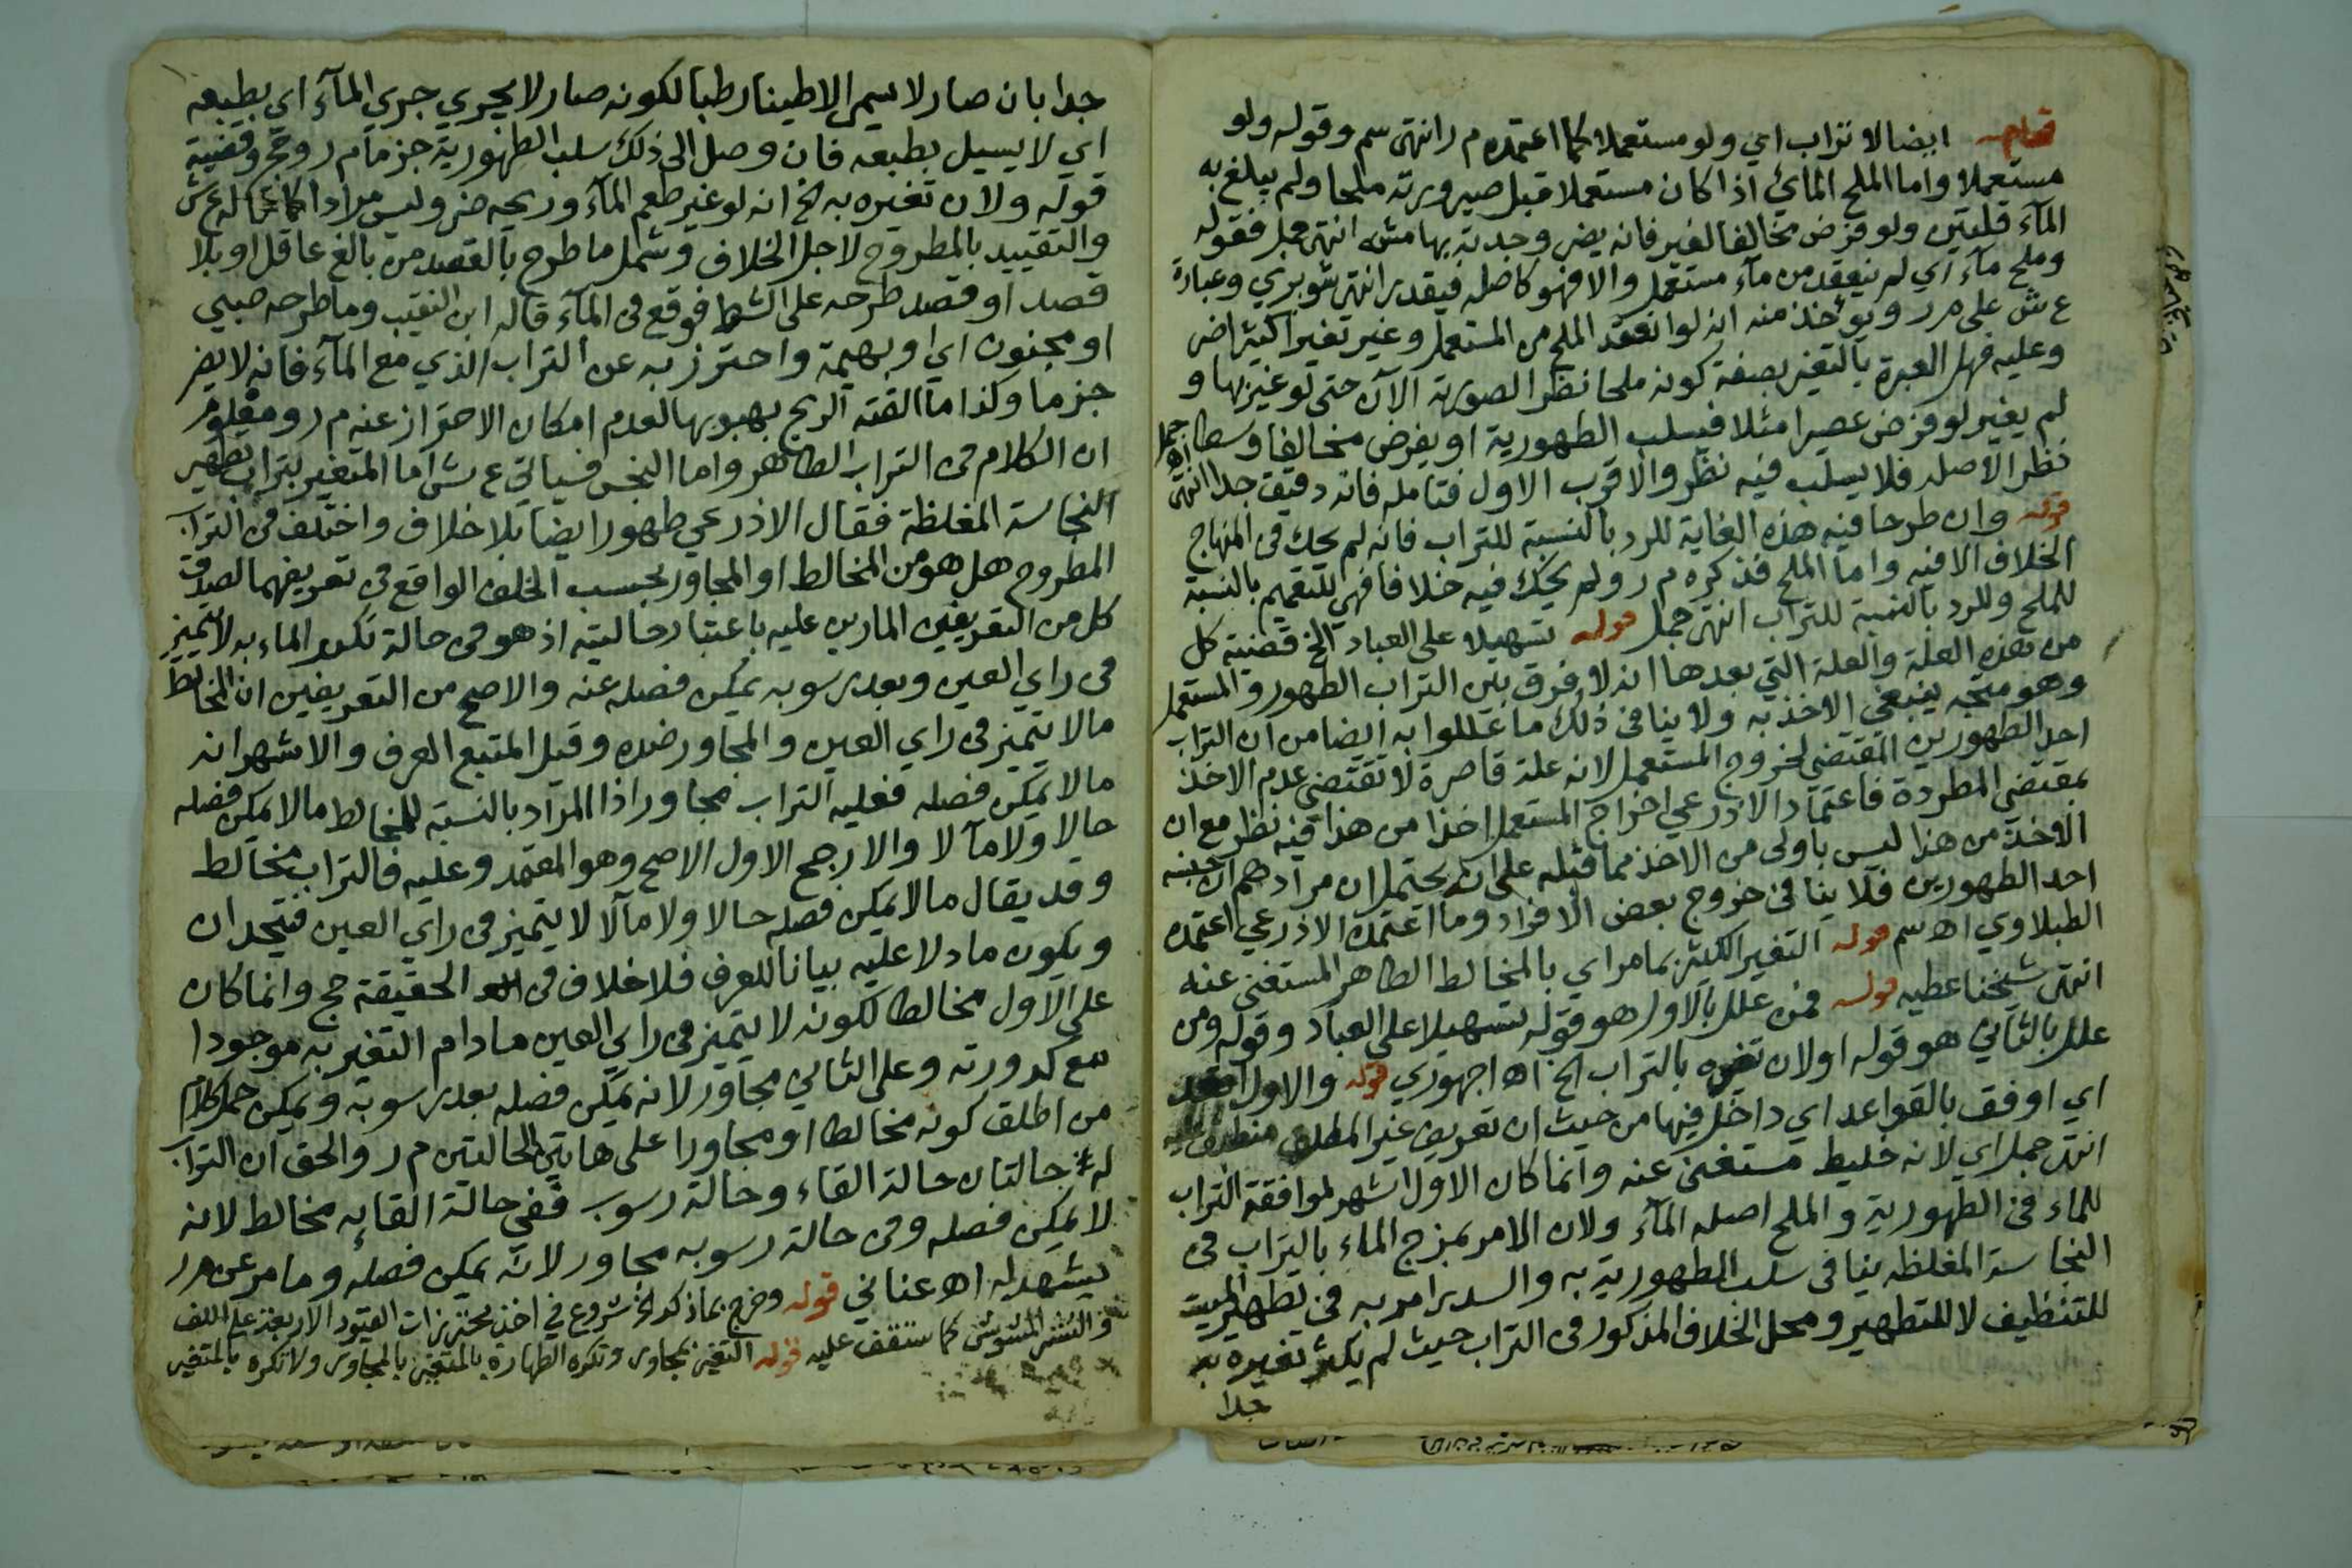 ايضا لا تراب اي ولو مستعملا كما اعتمده م ر انتهى سم وقوله ولو
مستعملا واما الملح المائي اذا كان مستعملا قبل صيرورته ملحا ولم يبلغ به
الماء قلتين ولو فرض مخالفا لغير فانه يضر وجدته بهامش انتهى فقوله
وملح ماء اي لم ينعقد من ماء مستعمل والا فهو كاصله فيقدر انتهى شوبري وعبارة
ع ش على م ر ويؤخذ منه انه لو انعقد الملح من المستعمل وغير تغيرا كثيرا ضر
وعليه فهل العبرة بالتغير بصفة كونه ملحا نظرا لصورته الآن حتى لو غير بها و
لم يغير لو فرض عصيرا مثلا فيسلب الطهورية او يفرض مخالفا وسطا
نظرا لاصله فلا يسلب فيه نظر والاقرب الاول فتامله فانه دقيق جدا انتهى جمل
قوله وان طرحا فيه هذه الغاية للرد بالنسبة للتراب فانه لم يحك في المنهاج
الخلاف الا فيه واما الملح فذكره م ر ولم يحك فيه خلافا فهي للتعميم بالنسبة
للملح وللرد بالنسبة للتراب انتهى جمل قوله تسهيلا على العباد الخ قضية كل
من هذه العلة والعلة التي بعدها انه لا فرق بين التراب الطهور والمستعمل
وهو متجه ينبغي الاخذ به ولا ينافي ذلك ما عللوا به ايضا من ان التراب
احد الطهورين المقتضي لخروج المستعمل لانه علة قاصرة لا تقتضي عدم الاخذ
بمقتضى المطردة فاعتماد الاذرعي اخراج المستعمل اخذا من هذا فيه نظر مع ان
الاخذ من هذا ليس باولى من الاخذ مما قبله على انه يحتمل ان مرادهم ان جنسه
احد الطهورين فلا ينافي خروج بعض الافراد وما اعتمده الاذرعي اعتمده
الطبلاوي اه سم قوله التغير الكثير بما مر اي بالمخالط الطاهر المستغنى عنه
انتهى شيخنا عطيه قوله فمن علل بالاول هو قوله تسهيلا على العباد وقوله ومن
علل بالثاني هو قوله او لان تغيره بالتراب الخ اه اجهوري قوله والاول اقعد
اي اوفق بالقواعد اي داخل فيها من حيث ان تعريف غير المطلق منطبق عليه
انتهى جمل اي لانه خليط مستغنى عنه وانما كان الاول اشهر لموافقة التراب
للماء في الطهورية والملح اصله الماء ولان الامر بمزج الماء بالتراب في
النجاسة المغلظه ينافي سلب الطهورية به والسدر امر به في تطهير الميت
للتنظيف لا للتطهير ومحل الخلاف المذكور في التراب حيث لم يكثر تغيره به
جدا
جدا بان صار لا يسمى الا طينا رطبا لكونه صار لا يجري جري الماء اي بطبعه
اي لا يسيل بطبعه فان وصل الى ذلك سلب الطهورية جزما م ر وحج وقضية
قوله ولان تغيره به الخ انه لو غير طعم الماء وريحه ضر وليس مرادا كما قاله ع ش
والتقييد بالمطروح لاجل الخلاف وشمل ما طرح بالقصد من بالغ عاقل او بلا
قصد او قصد طرحه على الشط فوقع في الماء قاله ابن النقيب وما طرحه صبي
او مجنون اي او بهيمة واحترز به عن التراب الذي مع الماء فانه لا يضر
جزما وكذا ما القته الريح بهبوبها لعدم امكان الاحتراز عنه م ر ومعلوم
ان الكلام في التراب الطاهر واما النجس فسياتي ع ش اما المتغير بتراب تطهير
النجاسة المغلظة فقال الاذرعي طهور ايضا بلا خلاف واختلف في التراب
المطروح هل هو من المخالط او المجاور بحسب الخلف الواقع في تعريفهما لصدق
كل من التعريفين المارين عليه باعتبار حاليته اذ هو في حالة تكدر الماء به لا يتميز
في راي العين وبعد رسوبه يمكن فصله عنه والاصح من التعريفين ان المخالط
ما لا يتميز في راي العين والمجاور ضده وقيل المتبع العرف والاشهر انه
ما لا يمكن فصله فعليه التراب مجاور اذا المراد بالنسبة للمخالط ما لا يمكن فصله
حالا ولا مآلا والارجح الاول الاصح وهو المعتمد وعليه فالتراب مخالط
وقد يقال ما لا يمكن فصله حالا ولا مآلا لا يتميز في راي العين فيتحدان
ويكون ما دلا عليه بيانا للعرف فلا خلاف في الحقيقة حج وانما كان
على الاول مخالطا لكونه لا يتميز في راي العين ما دام التغير به موجودا
مع كدورته وعلى الثاني مجاور لانه يمكن فصله بعد رسوبه ويمكن حمل كلام
من اطلق كونه مخالطا او مجاورا على هاتين الحالتين م ر والحق ان التراب
له حالتان حالة القاء وحالة رسوب ففي حالة القايه مخالط لانه
لا يمكن فصله وفي حالة رسوبه مجاور لانه يمكن فصله وما مر عن م ر
يشهد له اه عناني قوله وخرج بما ذكر الخ شروع في اخذ محترزات القيود الاربعة على اللف
والنشر المشوش كما ستقف عليه قوله التغير بمجاور وتكره الطهارة بالمتغير بالمجاور ولا تكره بالمتغير